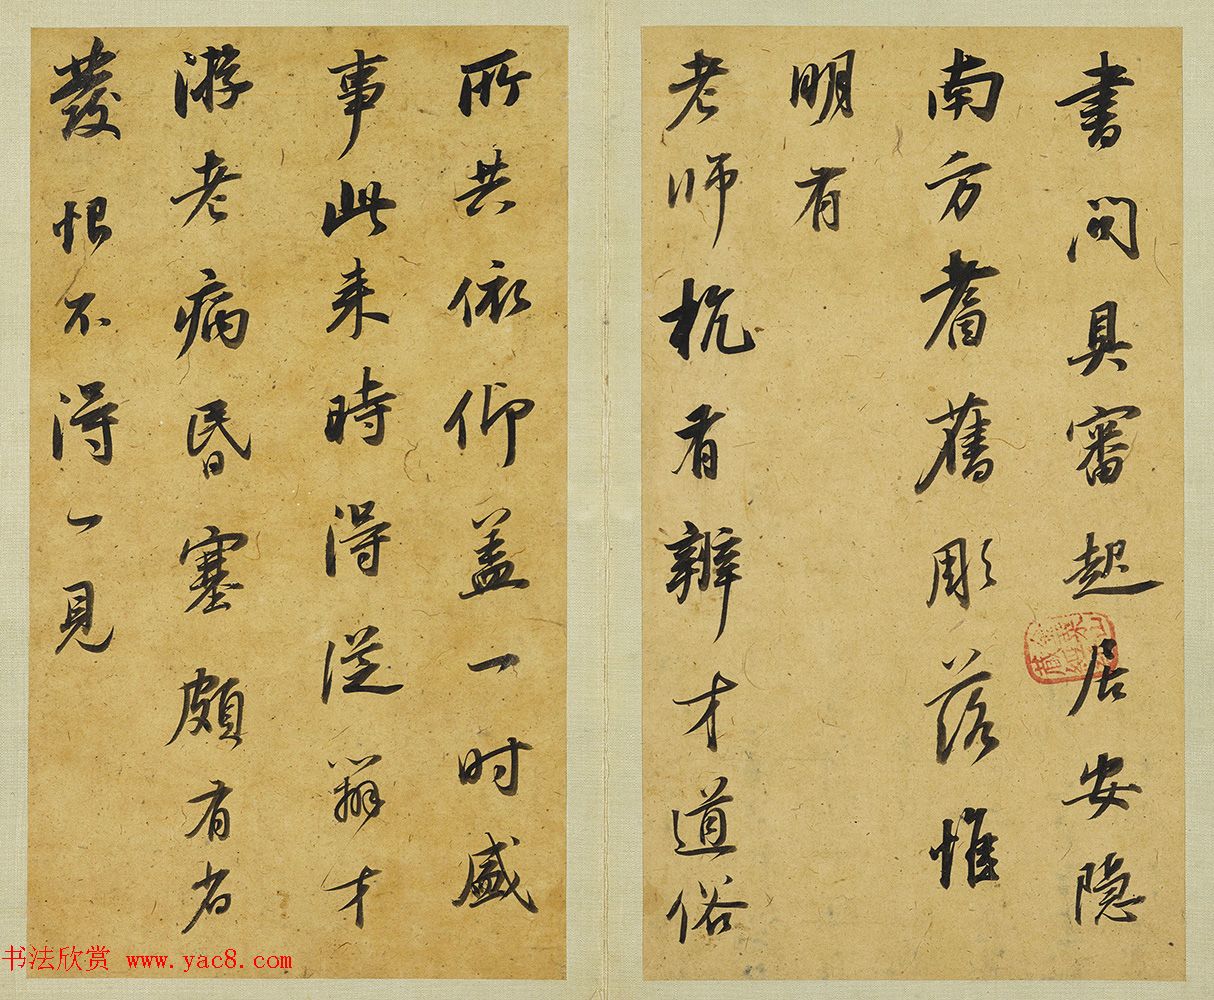 書問具審起居安隱
南方耆舊彫落惟
明有
老師杭有辯才道俗
所共依仰盖一时盛
事此来時得從辯才
游老病昏塞頗有省
發恨不得一見
书法欣赏 www.yac8.com